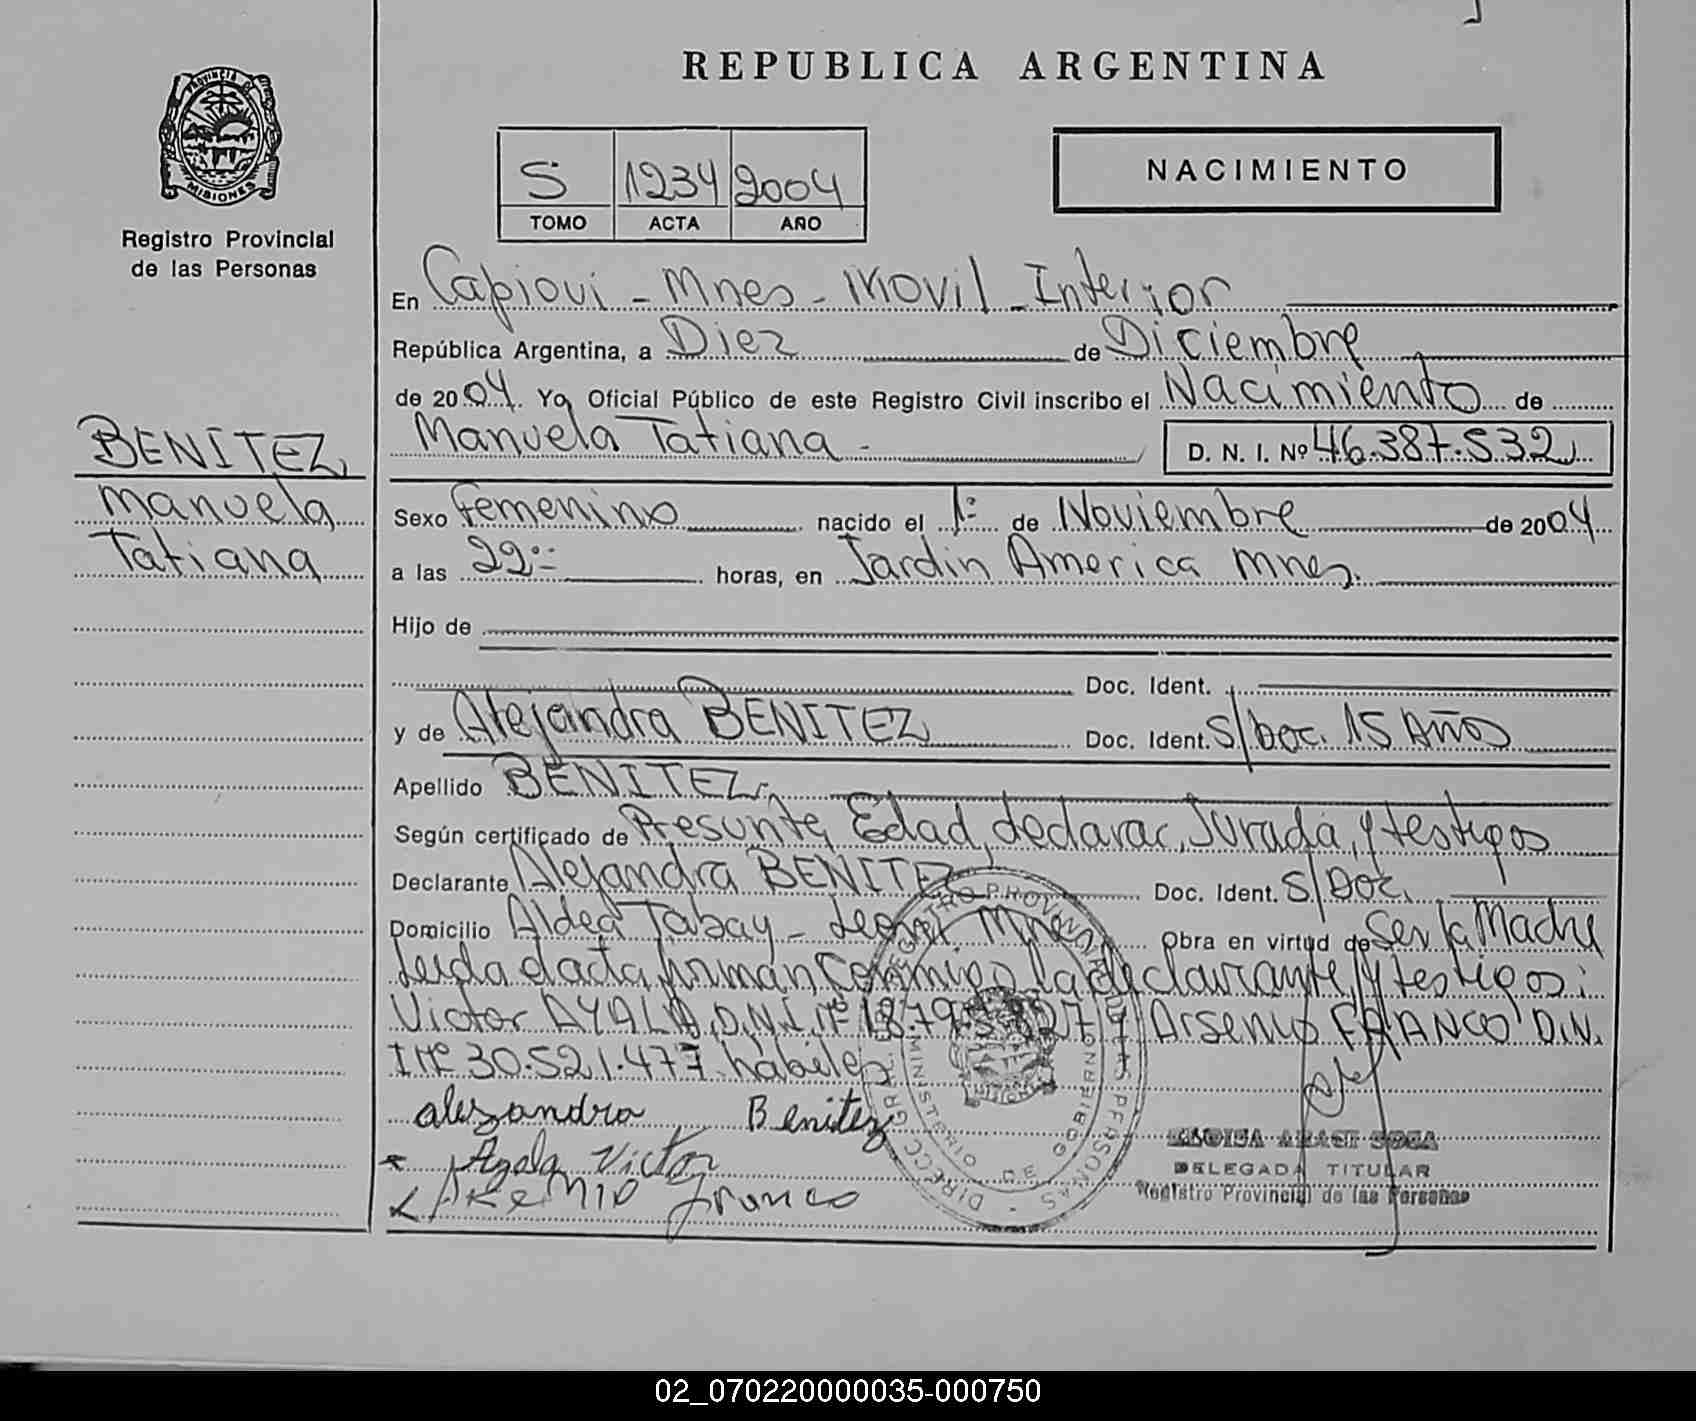 REPUBLICA ARGENTINA
PROVINCIA DE
MISIONES
Registro Provincial
de las Personas
5 1234 2004
TOMO ACTA AÑO
NACIMIENTO
En Capiovi - Mnes - Movil - Interior
República Argentina, a Diez de Diciembre
de 2004. Yo, Oficial Público de este Registro Civil inscribo el Nacimiento de
Manuela Tatiana - D. N. I. Nº 46.387.532
BENITEZ
Manuela
Tatiana
Sexo Femenino nacido el 1º de Noviembre de 2004
a las 22 horas, en Jardin America Mnes.
Hijo de
Doc. Ident.
y de Alejandra BENITEZ Doc. Ident. S/Doc. 15 Años
Apellido BENITEZ
Según certificado de Presunta Edad, declarac. Jurada, y testigos
Declarante Alejandra BENITEZ Doc. Ident. S/Doc.
Domicilio Aldea Tabay - Mnes Obra en virtud de Ser la Madre
Leida el acta, firman conmigo la declarante y testigos:
Victor AYALA D.N.I. Nº y Arsenio FRANCO D.N.
I Nº 30.521.477 habiles
alezandra Benitez
Ayala Victor
Franco
DIRECC. GRAL. REGISTRO PROVINCIAL DE LAS PERSONAS
MINISTERIO DE GOBIERNO
MISIONES
DELEGADA TITULAR
Registro Provincial de las Personas
02_070220000035-000750